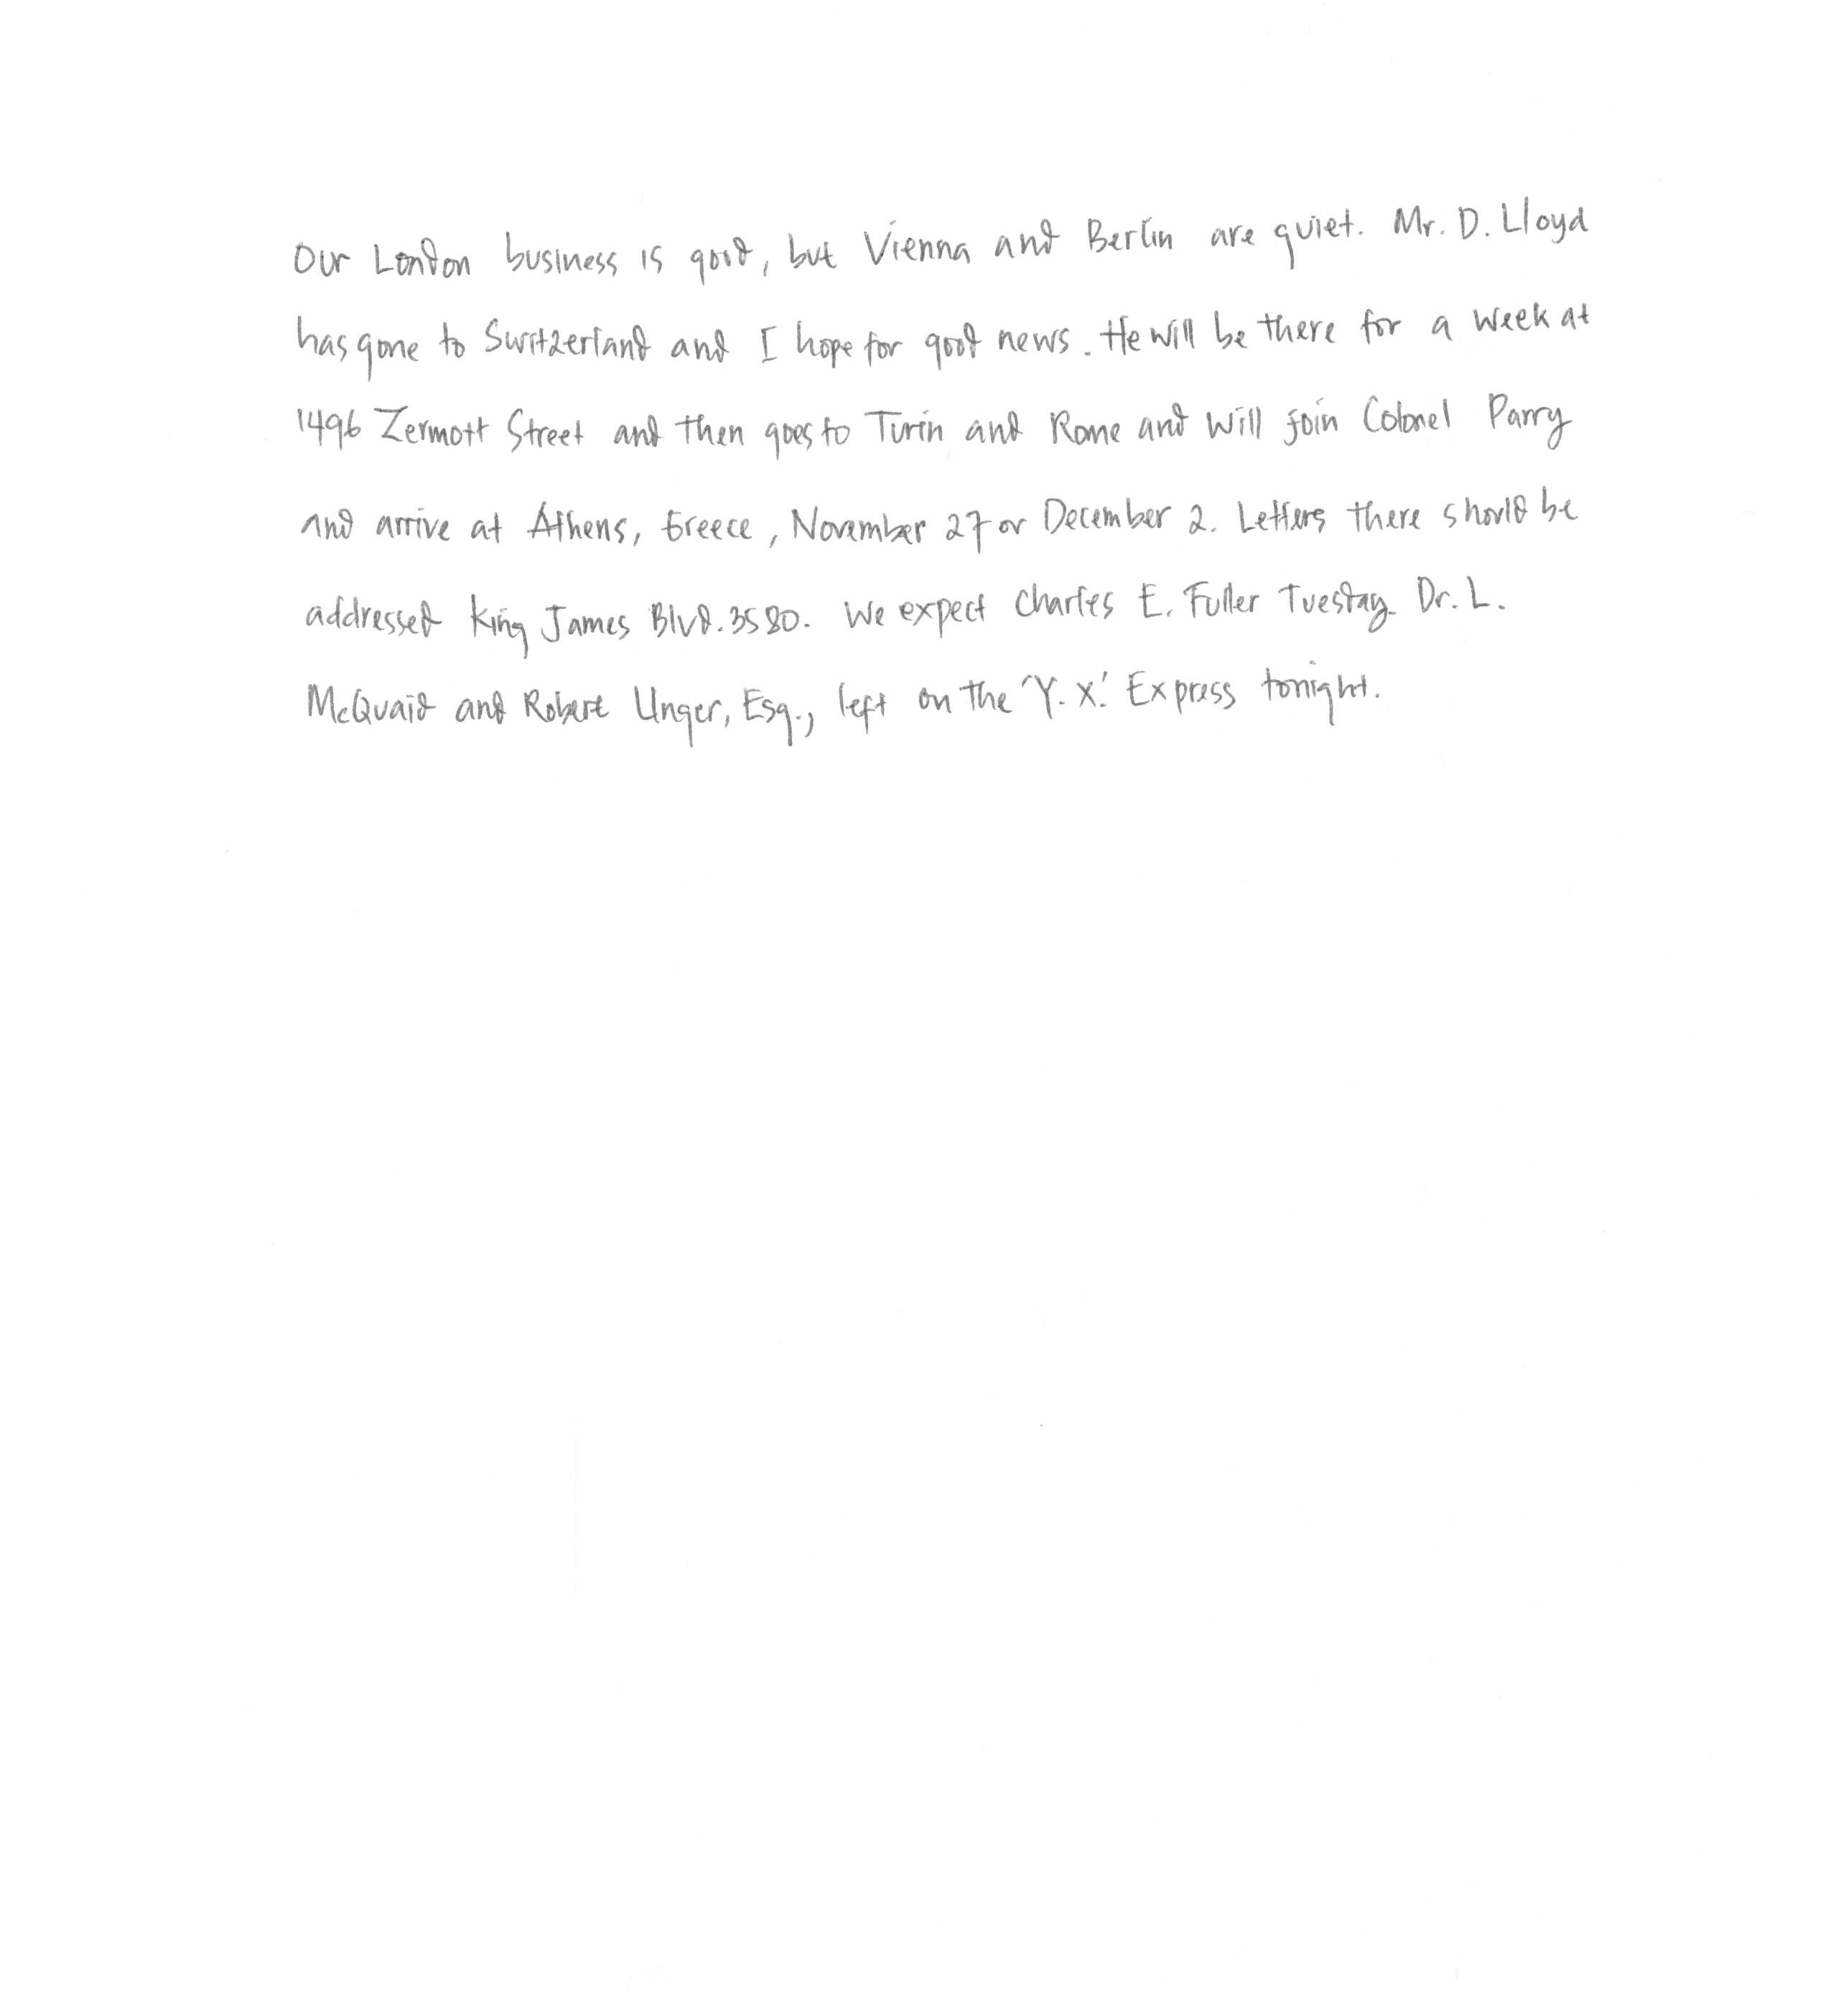 Our London business is good, but Vienna and Berlin are quiet. Mr. D. Lloyd
has gone to Switzerland and I hope for good news. He will be there for a week at
1496 Zermott Street and then goes to Turin and Rome and will join Colonel Parry
and arrive at Athens, Greece, November 27 or December 2. Letters there should be
addressed King James Blvd. 3580. We expect Charles E. Fuller Tuesday. Dr. L.
McQuaid and Robert Unger, Esq., left on the 'Y. X.' Express tonight.